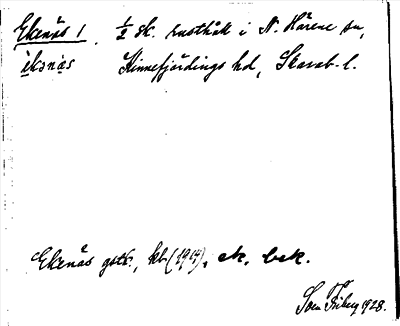 Ekenäs 1. 1/2 sk. rusthåll i N. Härene sn,
èkənä̀s Kinnefjärdings hd, Skarab. l.
Ekenäs gstk., kb (1914), ek. bek.
Sven Friberg 1928.